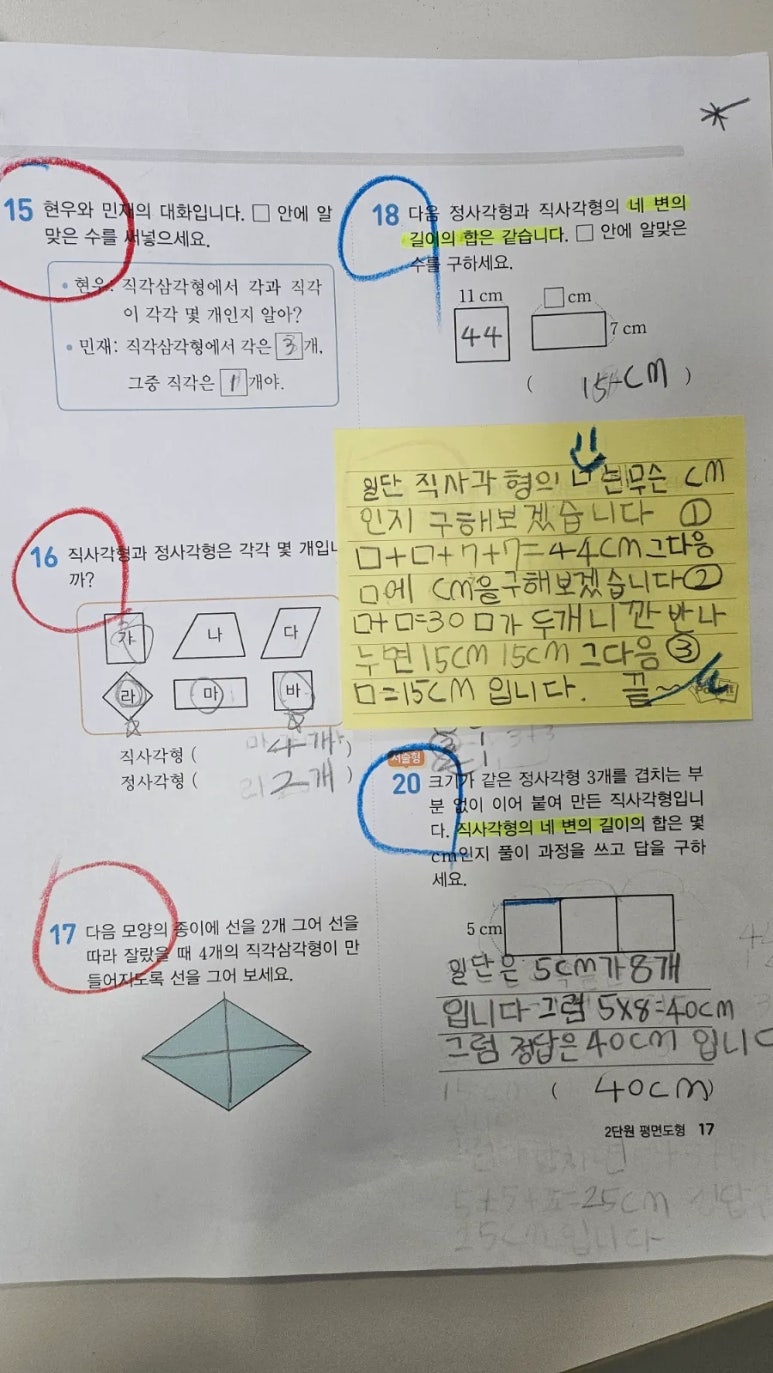 15 현우와 민재의 대화입니다. □ 안에 알
맞은 수를 써넣으세요.
• 현우: 직각삼각형에서 각과 직각
이 각각 몇 개인지 알아?
• 민재: 직각삼각형에서 각은 3 개,
그중 직각은 1 개야.
16 직사각형과 정사각형은 각각 몇 개입니
까?
가 나 다
라 마 바
직사각형 ( 4개 )
정사각형 ( 2개 )
17 다음 모양의 종이에 선을 2개 그어 선을
따라 잘랐을 때 4개의 직각삼각형이 만
들어지도록 선을 그어 보세요.
18 다음 정사각형과 직사각형의 네 변의
길이의 합은 같습니다. □ 안에 알맞은
수를 구하세요.
11 cm □ cm
44 7 cm
( 15cm )
일단 직사각형의 ㅁ는 무슨 CM
인지 구해보겠습니다 ①
□+□+7+7=44CM 그다음
□에 CM을 구해보겠습니다 ②
□+□=30 □가 두개니깐 반나
누면 15CM 15CM 그다음 ③
□=15CM 입니다. 끝~
서술형
20 크기가 같은 정사각형 3개를 겹치는 부
분 없이 이어 붙여 만든 직사각형입니
다. 직사각형의 네 변의 길이의 합은 몇
cm인지 풀이 과정을 쓰고 답을 구하
세요.
5 cm
일단은 5cm가 8개
입니다 그럼 5×8=40cm
그럼 정답은 40cm 입니다
( 40cm )
2단원 평면도형 17
5+5+5=25cm
25cm 입니다